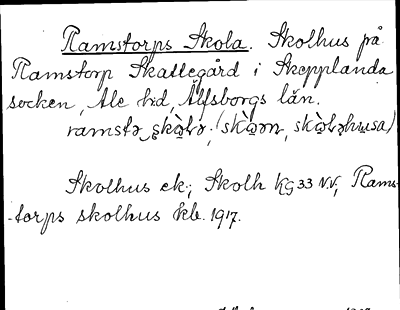 Ramstorps Skola. Skolhus på
Ramstorp Skattegård i Skepplanda
socken, Ale hd, Älfsborgs län.
ramstə skò̬lə (skò̬ən, skò̬ləhusa)
Skolhus ek; Skolh KG 33 N.V., Rams-
torps skolhus kb. 1917.